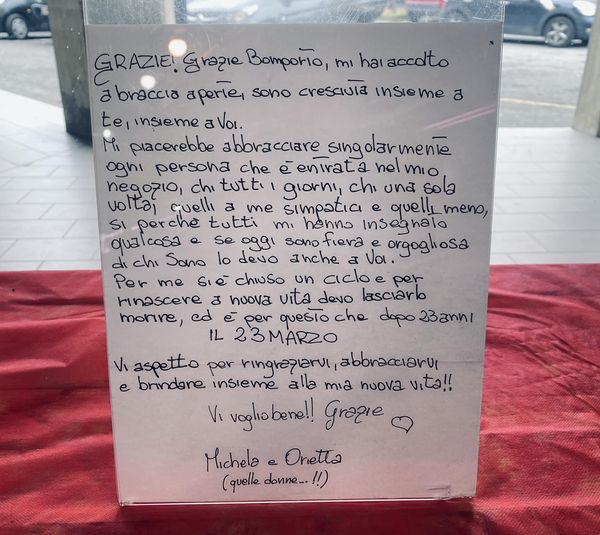 GRAZIE! Grazie Bomporto, mi hai accolto
a braccia aperte, sono cresciuta insieme a
te, insieme a Voi.
Mi piacerebbe abbracciare singolarmente
ogni persona che è entrata nel mio
negozio, chi tutti i giorni, chi una sola
volta, quelli a me simpatici e quelli meno,
si perchè tutti mi hanno insegnato
qualcosa e se oggi sono fiera e orgogliosa
di chi Sono lo devo anche a Voi.
Per me si è chiuso un ciclo e per
rinascere a nuova vita devo lasciarlo
morire, ed è per questo che dopo 23 anni
IL 23 MARZO
Vi aspetto per ringraziarvi, abbracciarvi
e brindare insieme alla mia nuova vita!!
Vi voglio bene!! Grazie
Michela e Orietta
(quelle donne...!!)